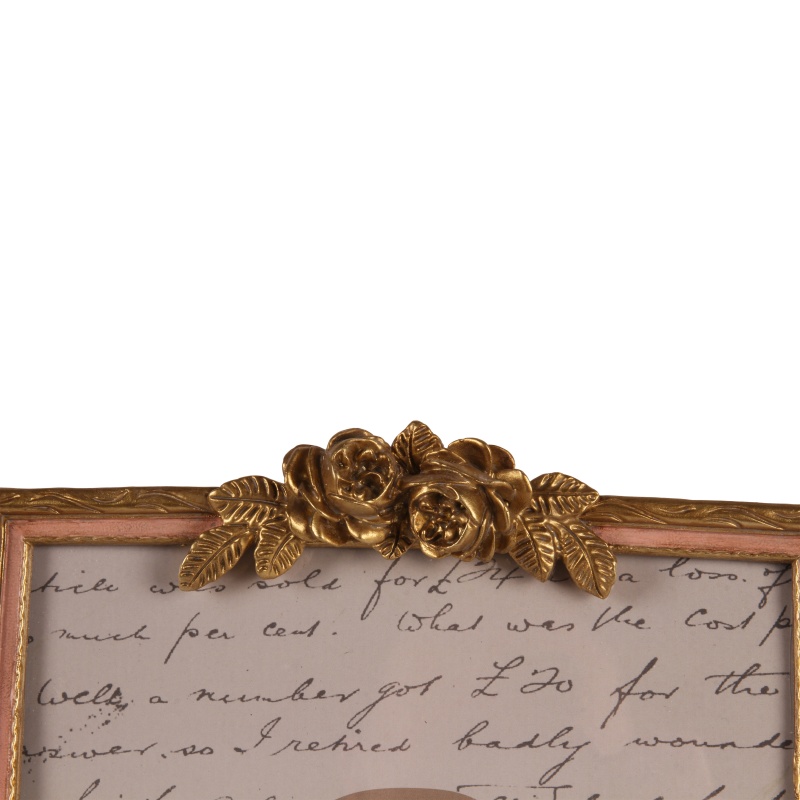 ticle was sold for £24 a loss. of
much per cent. What was the cost p
Well, a number got £20 for the
answer. so I retired badly wounde